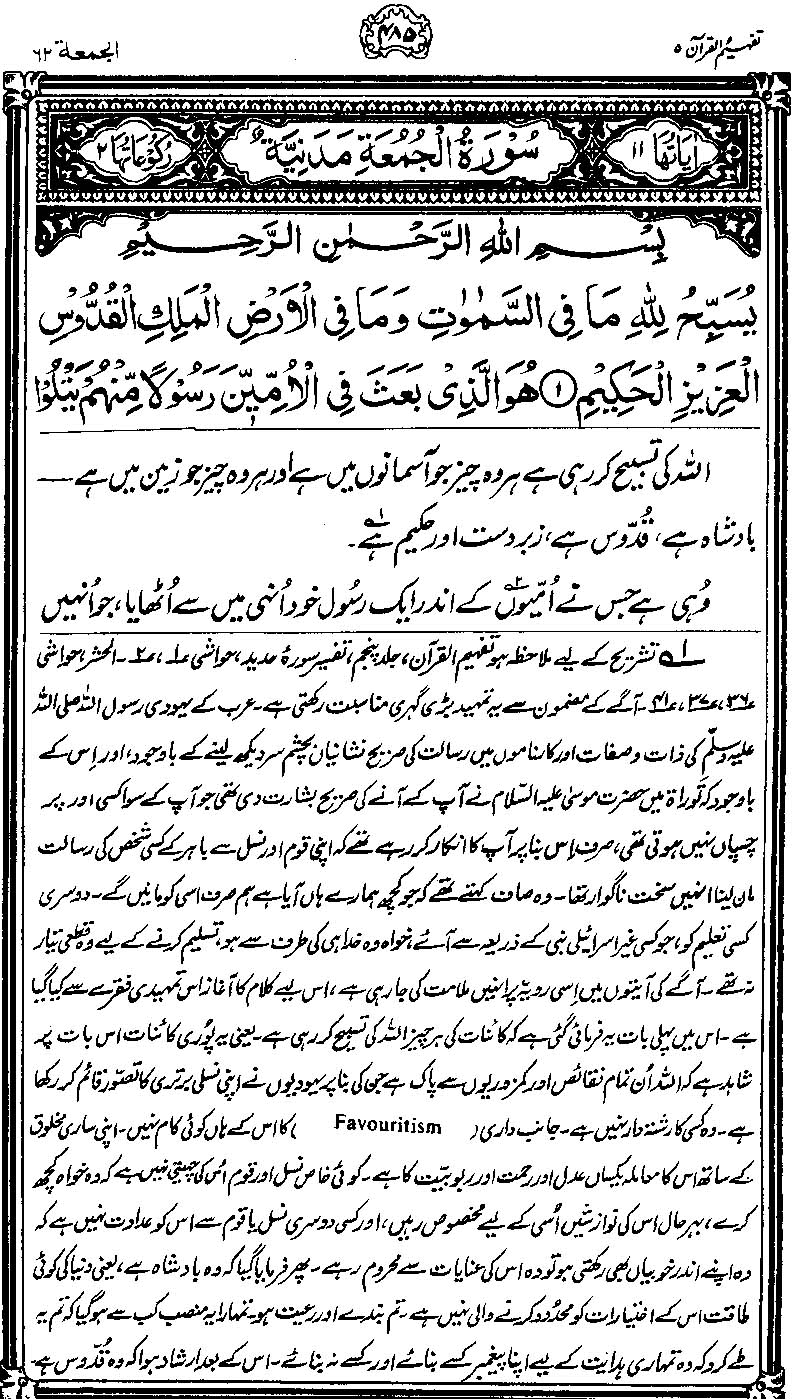 تفہیم القرآن ۵
۴۸۵
الجمعة ۶۲
اٰیَاتُهَا ۱۱
سُوْرَةُ الْجُمُعَةِ مَدَنِیَّةٌ
رُکُوْعَاتُهَا ۲
بِسْمِ اللهِ الرَّحْمٰنِ الرَّحِیْمِ
یُسَبِّحُ لِلّٰهِ مَا فِی السَّمٰوٰتِ وَمَا فِی الْاَرْضِ الْمَلِكِ الْقُدُّوْسِ
الْعَزِیْزِ الْحَكِیْمِ ۝۱ هُوَ الَّذِیْ بَعَثَ فِی الْاُمِّیّٖنَ رَسُوْلًا مِّنْهُمْ یَتْلُوْا
اللہ کی تسبیح کر رہی ہے ہر وہ چیز جو آسمانوں میں ہے اور ہر وہ چیز جو زمین میں ہے ــــ
بادشاہ ہے، قُدّوس ہے، زبردست اور حکیم ہے۱؎۔
وُہی ہے جس نے اُمّیوں۲؎ کے اندر ایک رسُول خود اُنہی میں سے اُٹھایا، جو اُنہیں
۱؎ تشریح کے لیے ملاحظہ ہو تفہیم القرآن، جلد پنجم، تفسیر سورۂ حدید، حواشی ۱، ۲۔ الحشر، حواشی
۳۶، ۳۷، ۴۱۔ آگے کے مضمون سے یہ تمہید بڑی گہری مناسبت رکھتی ہے۔ عرب کے یہودی رسول اللہ صلی اللہ
علیہ وسلّم کی ذات و صفات اور کارناموں میں رسالت کی صریح نشانیاں بچشمِ سر دیکھ لینے کے باوجود، اور اِس کے
باوجود کہ توراۃ میں حضرت موسیٰ علیہ السّلام نے آپ کے آنے کی صریح بشارت دی تھی جو آپ کے سوا کسی اور پر
چسپاں نہیں ہوتی تھی، صرف اِس بنا پر آپ کا انکار کر رہے تھے کہ اپنی قوم اور نسل سے باہر کے کسی شخص کی رسالت
مان لینا انہیں سخت ناگوار تھا۔ وہ صاف کہتے تھے کہ جو کچھ ہمارے ہاں آیا ہے ہم صرف اسی کو مانیں گے۔ دوسری
کسی تعلیم کو، جو کسی غیر اسرائیلی نبی کے ذریعہ سے آئے، خواہ وہ خدا ہی کی طرف سے ہو، تسلیم کرنے کے لیے وہ قطعی تیار
نہ تھے۔ آگے کی آیتوں میں اِسی رویّہ پر انہیں ملامت کی جا رہی ہے، اس لیے کلام کا آغاز اس تمہیدی فقرے سے کیا گیا
ہے۔ اس میں پہلی بات یہ فرمائی گئی ہے کہ کائنات کی ہر چیز اللہ کی تسبیح کر رہی ہے۔ یعنی یہ پُوری کائنات اس بات پر
شاہد ہے کہ اللہ اُن تمام نقائص اور کمزوریوں سے پاک ہے جن کی بنا پر یہودیوں نے اپنی نسلی برتری کا تصوّر قائم کر رکھا
ہے۔ وہ کسی کا رشتہ دار نہیں ہے۔ جانب داری (Favouritism) کا اس کے ہاں کوئی کام نہیں۔ اپنی ساری مخلوق
کے ساتھ اس کا معاملہ یکساں عدل اور رحمت اور ربوبیّت کا ہے۔ کوئی خاص نسل اور قوم اُس کی چہیتی نہیں ہے کہ وہ خواہ کچھ
کرے، بہرحال اس کی نوازشیں اُسی کے لیے مخصوص رہیں، اور کسی دوسری نسل یا قوم سے اس کو عداوت نہیں ہے کہ
وہ اپنے اندر خوبیاں بھی رکھتی ہو تو وہ اس کی عنایات سے محروم رہے۔ پھر فرمایا گیا کہ وہ بادشاہ ہے، یعنی دنیا کی کوئی
طاقت اس کے اختیارات کو محدُود کرنے والی نہیں ہے۔ تم بندے اور رعیت ہو۔ تمہارا یہ منصب کب سے ہو گیا کہ تم یہ
طے کرو کہ وہ تمہاری ہدایت کے لیے اپنا پیغمبر کسے بنائے اور کسے نہ بنائے۔ اس کے بعد ارشاد ہوا کہ وہ قُدّوس ہے۔